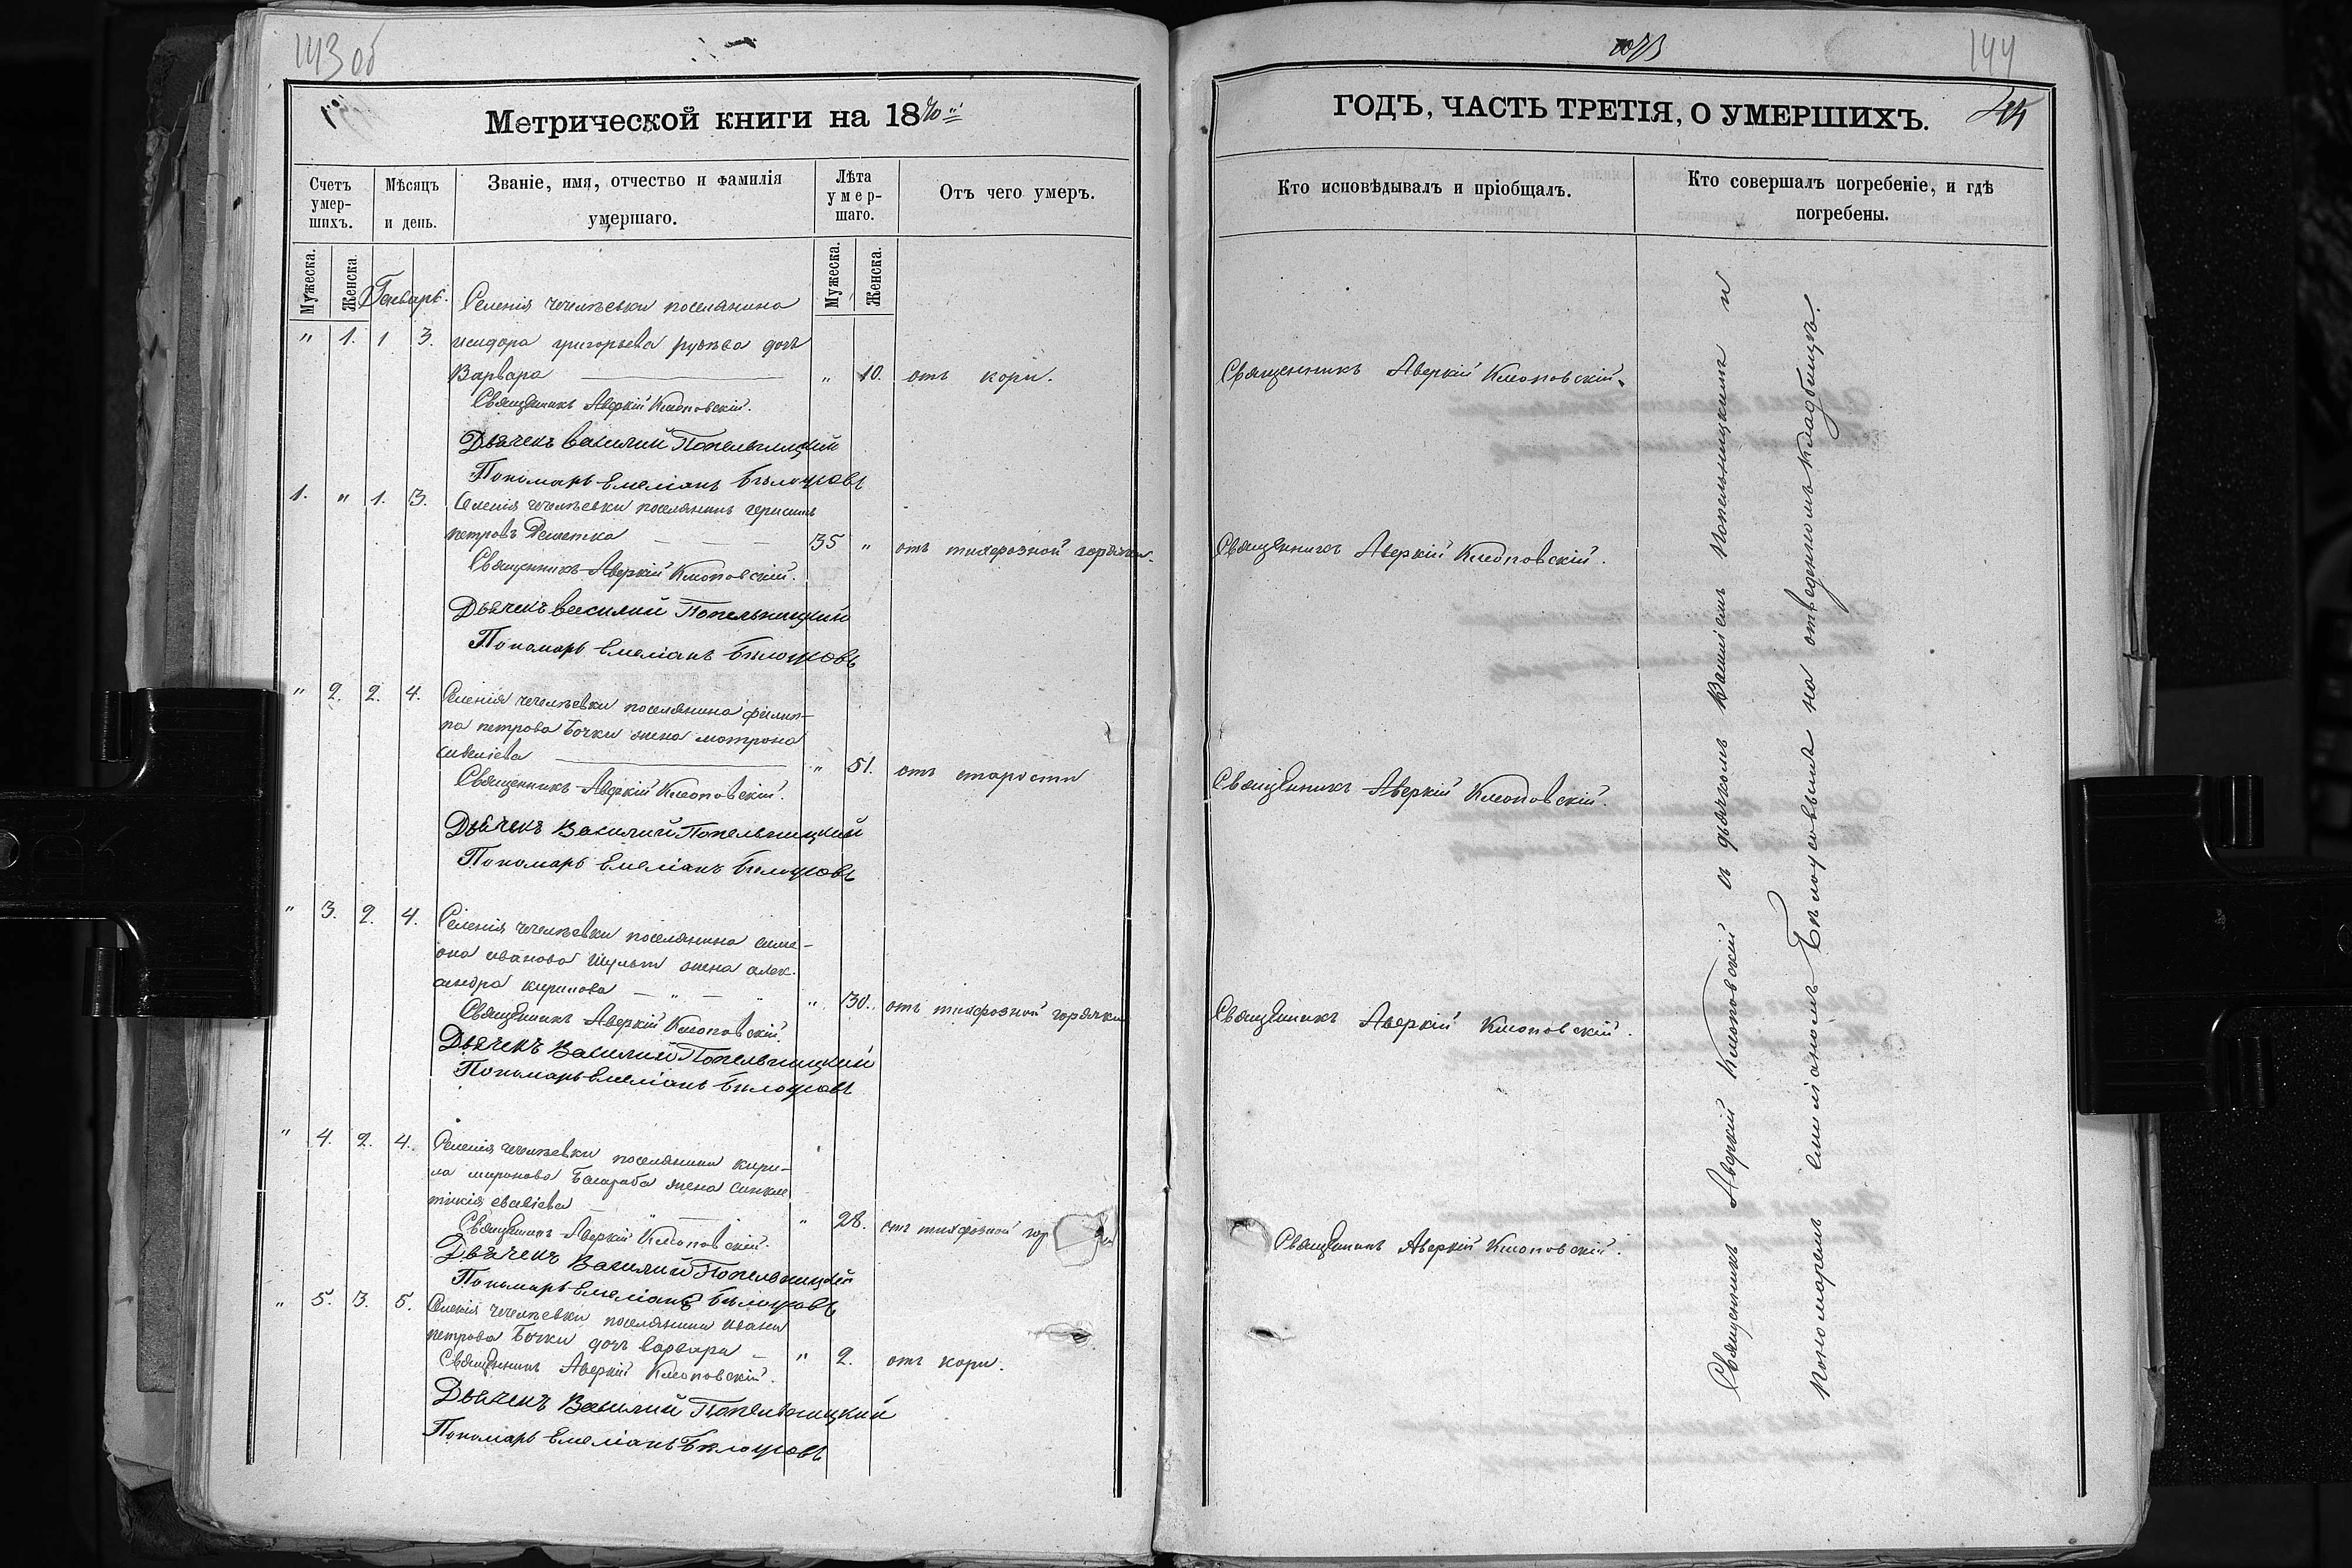 143 об
Метрической книги на 1870й
Счетъ умер-шихъ.
Мѣсяцъ и день.
Званіе, имя, отчество и фамилія умершаго.
Лѣта умер-шаго.
Отъ чего умеръ.
Мужеска.
Женска.
Генварь.
Мужеска.
Женска.
Селенія чечелѣевки поселянина
" 1. 1 3. исидора григорьева дочь
Варвара " 10. отъ кори.
Священникъ Аверкій Клоповскій.
Дьячекъ Василий Попельницкий
Пономарь Емеліанъ Бѣлоусовъ
1. " 1. 3. Селенія чечелѣевки поселянинъ герасимъ
петровъ Решетка 35 " отъ тифозной горячки.
Священникъ Аверкій Клоповскій.
Дьячекъ василий Попельницкий
Пономарь Емеліанъ Бѣлоусовъ
" 2. 2. 4. Селенія чечелѣевки поселянина филип-
па петрова Бочки жена матрона
савеліева " 51. отъ старости
Священникъ Аверкій Клоповскій.
Дьячекъ Василий Попельницкий
Пономарь Емеліанъ Бѣлоусовъ
" 3. 2. 4. Селенія чечелѣевки поселянина симе-
она иванова Шульги жена алек-
сандра кирилова " 30. отъ тифозной горячки
Священникъ Аверкій Клоповскій.
Дьячекъ Василий Попельницкий
Пономарь Емеліанъ Бѣлоусовъ
" 4. 2. 4. Селенія чечелѣевки поселянина кири-
ла миронова жена синкле
тикія " 28. отъ тифозной гор
Священникъ Аверкій Клоповскій.
Дьячекъ Василий Попельницкий
Пономарь Емеліанъ Бѣлоусовъ
" 5. 3. 5. Селенія чечелѣевки поселянина ивана
петрова Бочки дочь варвара " 2. отъ кори.
Священникъ Аверкій Клоповскій.
Дьячекъ Василий Попельницкий
Пономарь Емеліанъ Бѣлоусовъ
144
ГОДЪ, ЧАСТЬ ТРЕТІЯ, О УМЕРШИХЪ.
Кто исповѣдывалъ и пріобщалъ.
Кто совершалъ погребеніе, и гдѣ погребены.
Священникъ Аверкій Клоповскій.
Священникъ Аверкій Клоповскій.
Священникъ Аверкій Клоповскій.
Священникъ Аверкій Клоповскій.
Священникъ Аверкій Клоповскій.
Священникъ Аверкій Клоповскій съ дьячкомъ Василіемъ Попельницкимъ и
пономаремъ Емиліаномъ Бѣлоусовымъ на отведенномъ кладбищѣ.